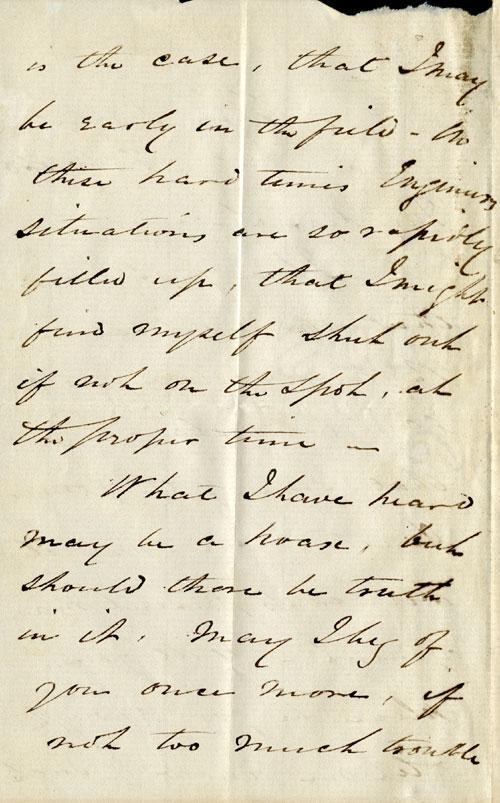 is the case, that I may
be early in the field - In
these hard times Engineers
situations are so rapidly
filled up, that I might
find myself shut out
if not on the spot, at
the proper time -
What I have heard
may be a hoax, but
should there be truth
in it, may I beg of
you once more, if
not too much trouble